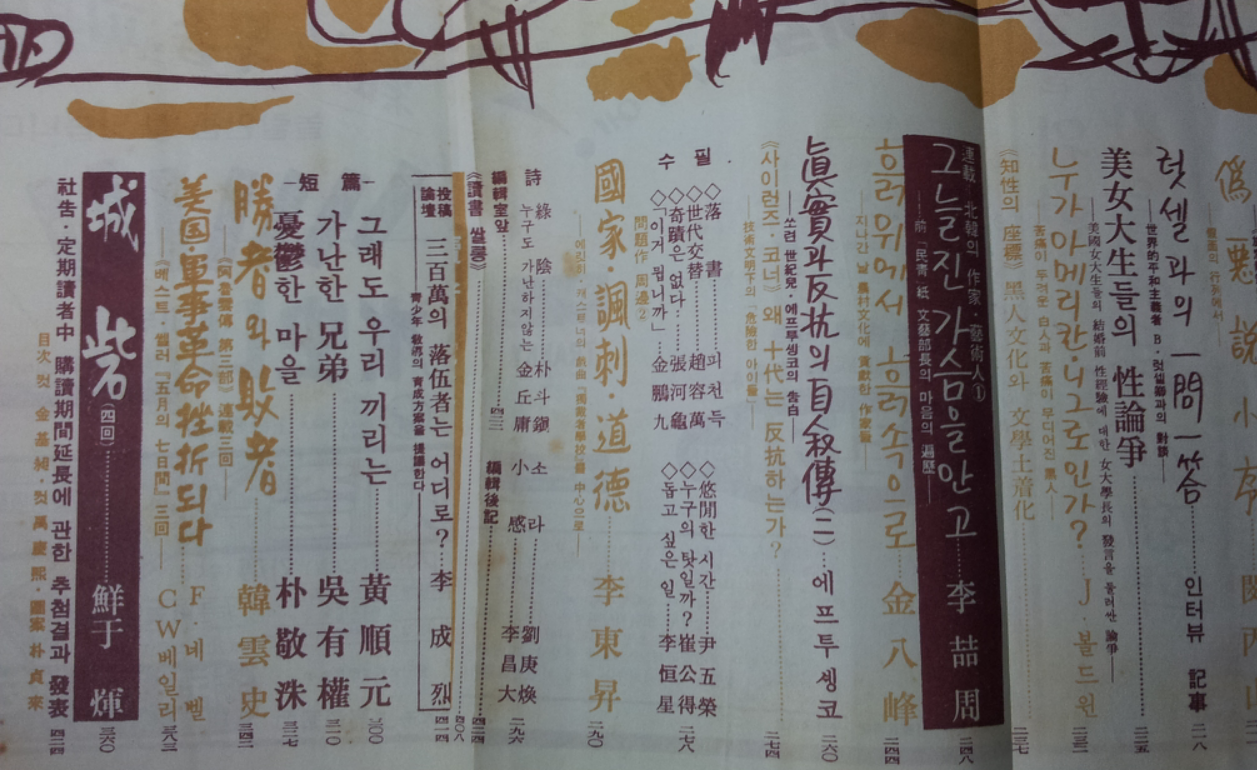 럿셀과의 一問一答 인터뷰 記事 二一八
世界的平和主義者 B·럿셀卿과의 對談
美女大生들의 性論爭 二二五
美國女大生들의 結婚前 性經驗에 대한 女大學長의 發言을 둘러싼 論爭
누가 아메리칸·니그로인가? J·볼드윈 二三二
苦痛이 두꺼운 白人과 苦痛이 무디어진 黑人
《知性의 座標》 黑人文化와 文學土着化 二三七
連載·北韓의 作家·藝術人①
그늘진 가슴을 안고 李喆周 二四八
前「民靑」紙 文藝部長의 마음의 遍歷
흙위에서 흙속으로 金八峰 二四四
지나간 날 農村文化에 貢獻한 作家들
眞實과 反抗의 自人敍傳(二) 에프투셍코 二六〇
쏘련 世紀兒·에프투셍코의 告白
《사이런즈·코너》 왜 十代는 反抗하는가? 二七四
技術文明下의 「危險한 아이들」
수필
◇落書 피천득
◇世代交替 趙容萬
◇奇蹟은 없다 張河龜
◇「이거 뭡니까」 金鵬九
◇悠閒한 시간 尹五榮
◇누구의 탓일까? 崔公得
◇돕고 싶은 일 李恒星
二七八
問題作 周邊②
國家·諷刺·道德 李東昇 二九〇
詩
綠陰 朴斗鎭
누구도 가난하지않는 金丘庸
소라 劉庚煥
小感 李昌大
二九六
編輯室앞 四二三
編輯後記 四二四
《讀書 쌀롱》 四〇八
投稿論壇 三百萬의 落伍者는 어디로? 李成烈 四一四
靑少年 敎導의 育成方案을 提議한다
短篇
그래도 우리 끼리는 黃順元 三〇〇
가난한 兄弟 吳有權 三一〇
憂鬱한 마을 朴敬洙 三二七
勝者의 敗者 韓雲史 三四二
《阿魯雲傳 第三部》 連載三回
美国軍事革命挫折되다 F·네벨 CW베일리 三八三
《베스트·쎌러『五月의 七日間』三回
城砦(四回) 鮮于煇 三六〇
社告·定期讀者中 購讀期間延長에 관한 추첨결과 發表 四二四
目次컷 金基昶·컷 萬慶熙·圖案 朴貞來